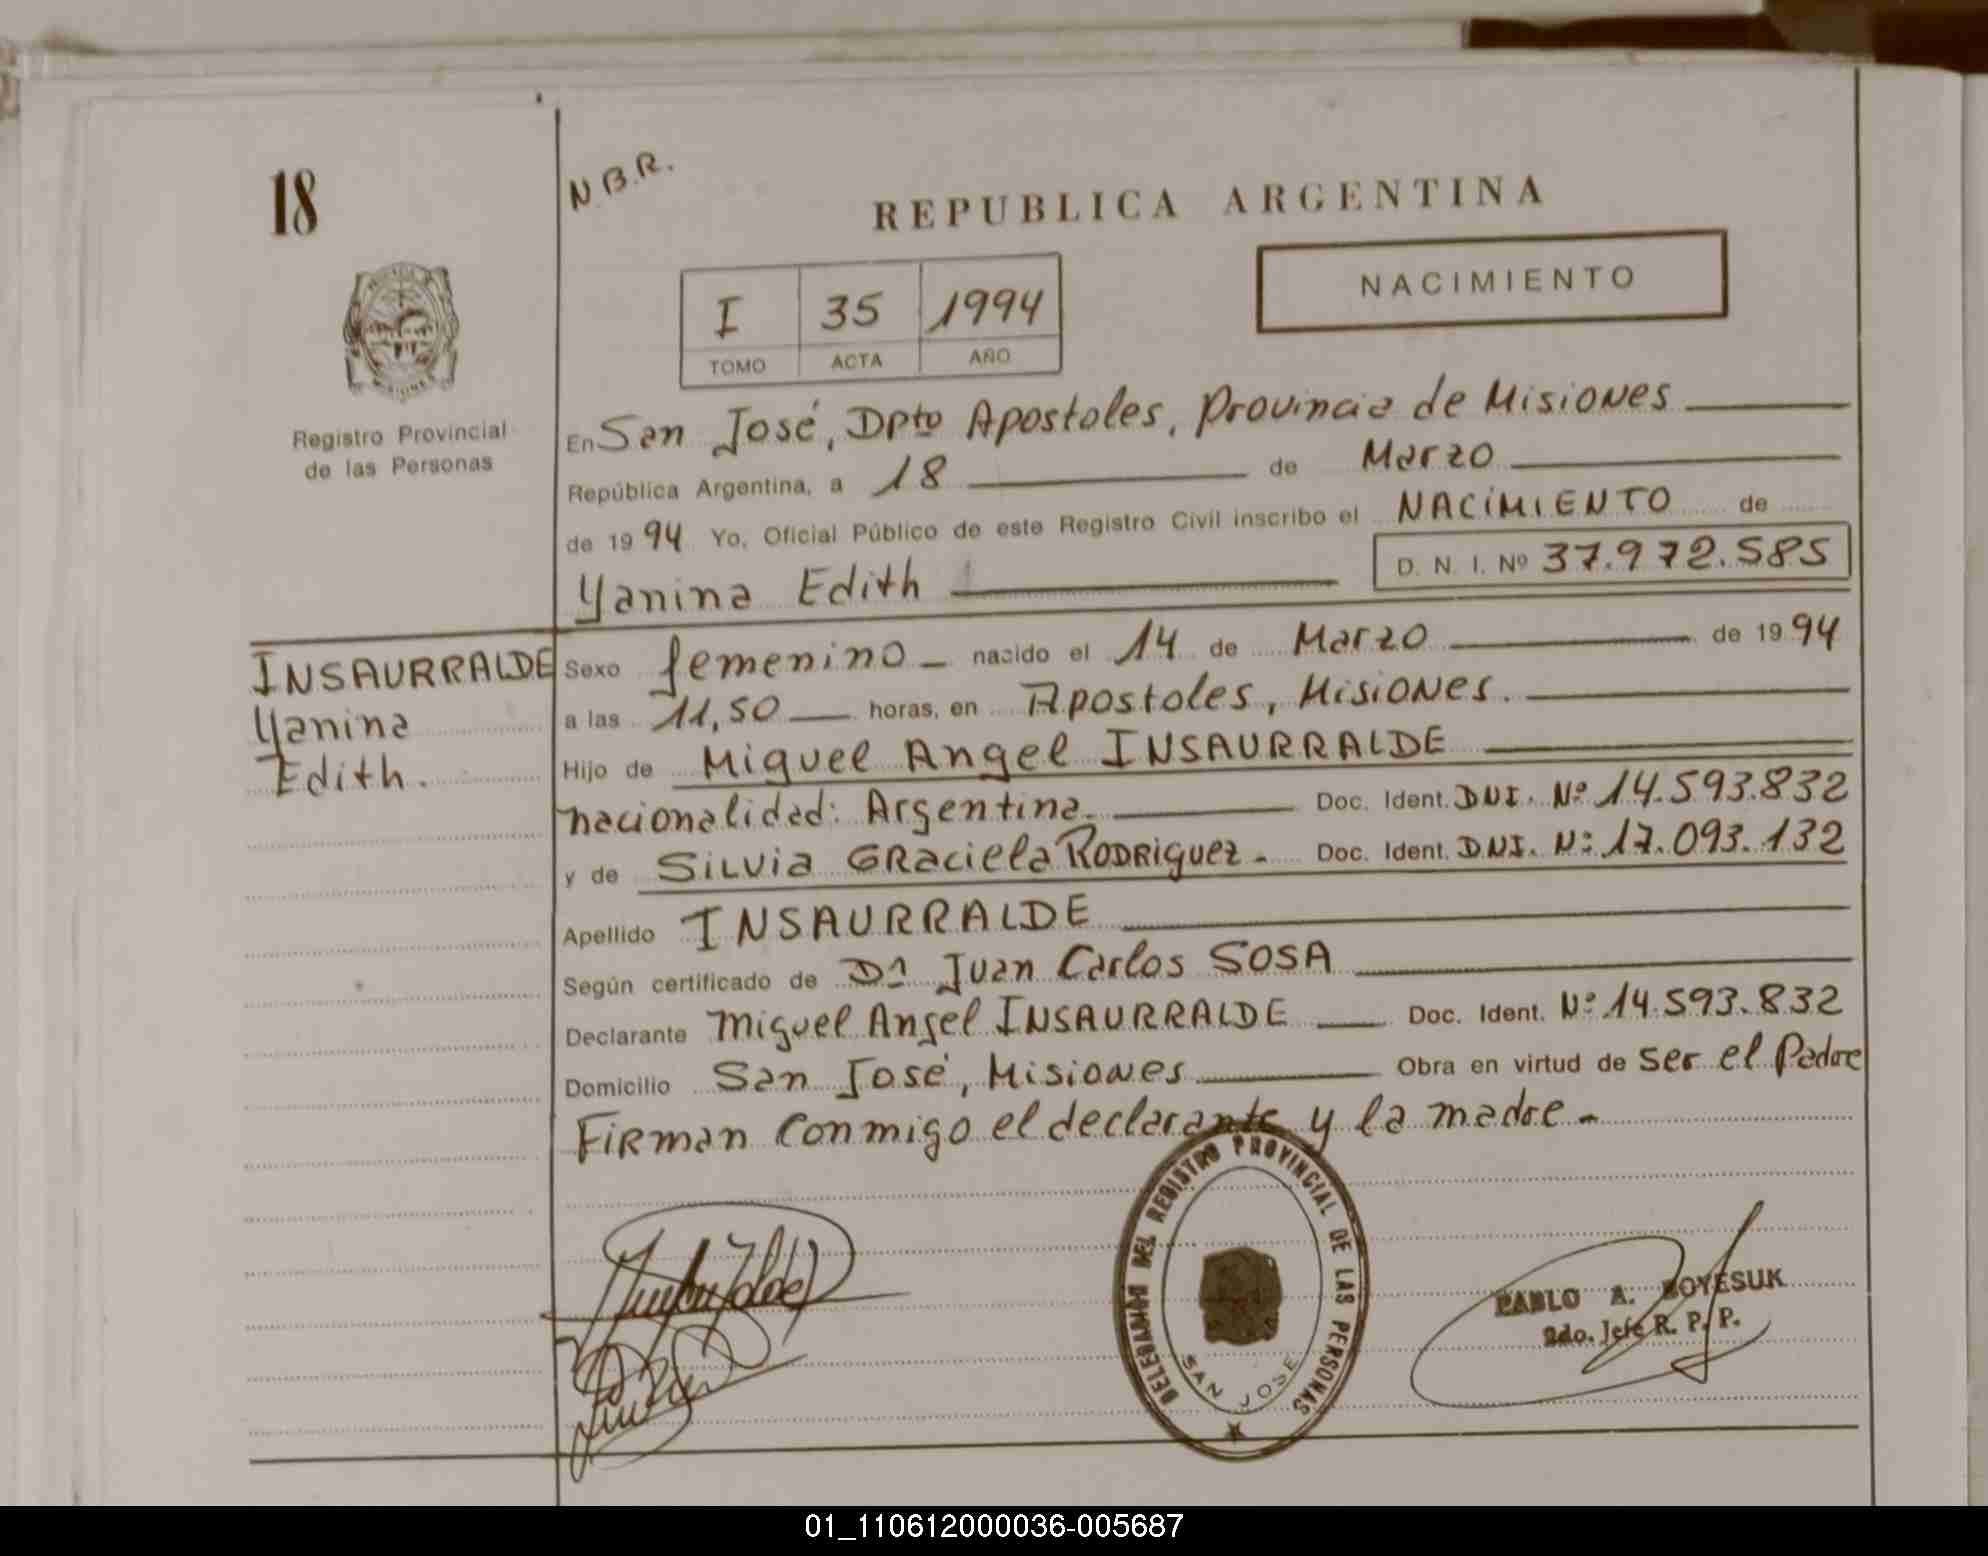 18
N.B.R.
REPUBLICA ARGENTINA
I 35 1994
TOMO ACTA AÑO
NACIMIENTO
Registro Provincial
de las Personas
En San José, Dpto Apostoles, Provincia de Misiones
República Argentina, a 18 de Marzo
de 1994 Yo, Oficial Público de este Registro Civil inscribo el NACIMIENTO de
Yanina Edith D. N. I. Nº 37.972.585
INSAURRALDE
Yanina
Edith.
Sexo femenino nacido el 14 de Marzo de 1994
a las 11,50 horas, en Apostoles, Misiones.
Hijo de Miguel Angel INSAURRALDE
nacionalidad: Argentina. Doc. Ident. DNI. Nº 14.593.832
y de Silvia Graciela Rodriguez. Doc. Ident. DNI. Nº 17.093.132
Apellido INSAURRALDE
Según certificado de Dn Juan Carlos SOSA
Declarante Miguel Angel INSAURRALDE Doc. Ident. Nº 14.593.832
Domicilio San José, Misiones Obra en virtud de ser el Padre
Firman conmigo el declarante y la madre.
DELEGACIÓN DEL REGISTRO PROVINCIAL DE LAS PERSONAS
SAN JOSE
PABLO A. BOYESUK
2do. Jefe R. P. P.
01_110612000036-005687